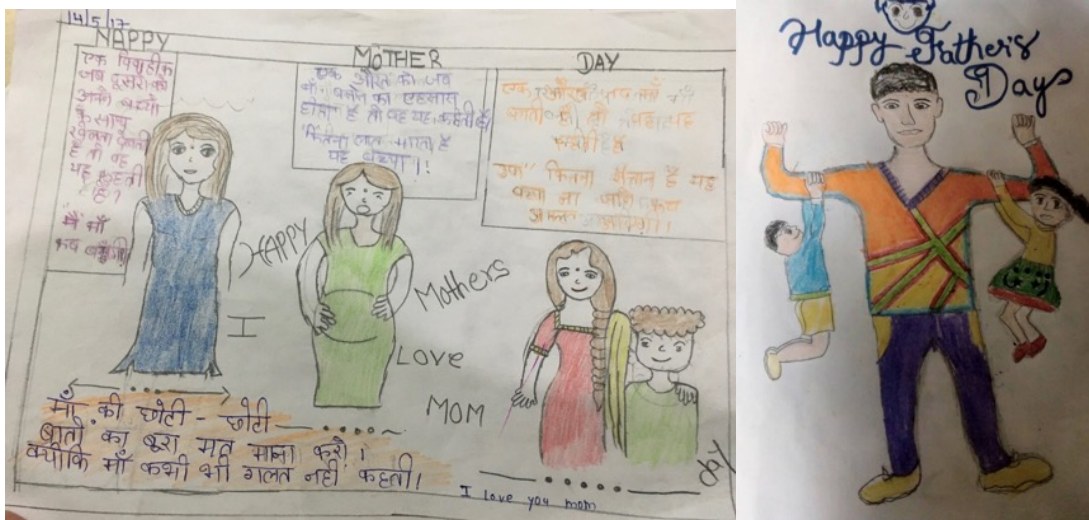 14/5/17
HAPPY MOTHER DAY
एक
जब दूसरो को
अपने बच्चो
के साथ
खेलता देखती
है तो वह
यह कहती
है?
मैं माँ
कब बनूँगी!
एक औरत को जब
माँ बनने का एहसास
होता है तो वह यह कहती है
कितना लात मारता है
यह बच्चा!!
एक औरत जब माँ बन
जाती है तो वह यह
कहती है
कितना शैतान है यह
बच्चा ना जाने कब
अक्ल आएगी।
HAPPY
Mothers
day
I
LOVE
MOM
माँ की छोटी - छोटी
बातो का बुरा मत माना करो।
क्योंकि माँ कभी भी गलत नही कहती।
I love you mom
Happy Father's
Day